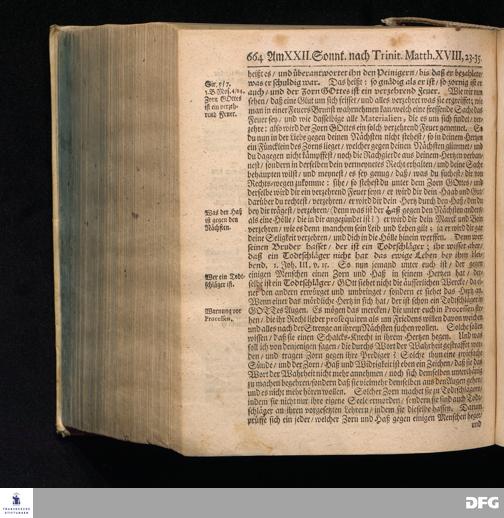 664 Am XXII. Sonnt. nach Trinit. Matth. XVIII, 23-35.
heißt es / und überantwortet ihn den Peinigern / biß daß er bezahlete /
was er schuldig war. Das heißt: so gnädig als er ist / so zornig ist er
auch / und der Zorn GOttes ist ein verzehrend Feuer. Wie wir nun
sehen / daß eine Glut um sich frisset / und alles verzehret was sie ergreiffet; wie
man in einer Feuers-Brunst wahrnehmen kan / welch eine fressende Sache das
Feuer sey / und wie dasselbige alle Materialien, die es um sich findet / ver-
zehre: also wird der Zorn GOttes ein solch verzehrend Feuer genennet. So
du nun in der Liebe gegen deinen Nächsten nicht stehest / so in deinem Hertzen
ein Füncklein des Zorns lieget / welcher gegen deinen Nächsten glimmet / und
du dagegen nicht kämpffest / noch die Rachgierde aus deinem Hertzen verban-
nest / sondern in derselben dein vermeynetes Recht erhalten / und deine Sache
behaupten wilst / und meynest / es sey genug / daß / was du suchest / dir von
Rechts-wegen zukomme: sihe / so stehest du unter dem Zorn GOttes / und
derselbe wird dir ein verzehrend Feuer seyn / er wird dir dein Haab und Gut
darüber du rechtest / verzehren / er wird dir dein Hertz durch den Haß / den du
bey dir trägest / verzehren / (denn was ist der Haß gegen den Nächsten anders
als eine Hölle / die in dir angezündet ist?) er wird dir dein Marck und Bein
verzehren / wie es denn manchem sein Leib und Leben gilt; ja er wird dir gar
deine Seligkeit verzehren / und dich in die Hölle hinein werffen. Denn wer
seinen Bruder hasset / der ist ein Todtschläger; ihr wisset aber,
daß ein Todtschläger nicht hat das ewige Leben bey ihm blei-
bend, 1. Joh. III, v. 15. So nun jemand unter euch ist / der gegen
einigen Menschen einen Zorn und Haß in seinem Hertzen hat / der-
selbe ist ein Todtschläger / GOtt siehet nicht die äusserlichen Wercke / daß
den andern erwürget und umbringet / sondern er siehet das Hertz an.
Wenn einer das mördliche Hertz in sich hat / der ist schon ein Todtschläger in
GOttes Augen. Es mögen das mercken / die unter euch in Processen ste-
hen / die ihr Recht lieber prosequiren als um Friedens willen davon weichen
und alles nach der Strenge an ihrem Nächsten suchen wollen. Solche sollen
wissen / daß sie einen Schalcks-Knecht in ihrem Hertzen hegen. Und was
soll ich von denjenigen sagen / die durchs Wort der Wahrheit gestraffet wer-
den / und tragen Zorn gegen ihre Prediger? Solche thun eine greuliche
Sünde / und der Zorn / Haß und Widrigkeit ist eben ein Zeichen / daß sie das
Wort der Wahrheit nicht mehr annehmen / noch sich demselben unterthänig
zu machen begehren / sondern daß sie vielmehr demselben aus den Augen gehen /
und es nicht mehr hören wollen. Solcher Zorn machet sie zu Todtschlägern /
indem sie nicht nur ihre eigene Seele ermorden / sondern sie sind auch Todt-
schläger an ihren vorgesetzten Lehrern / indem sie dieselbe hassen. Darum
prüffe sich ein jeder / welcher Zorn und Haß gegen einigen Menschen heget /
und
Zorn GOttes
ist ein verzeh-
rend Feuer.
Was der Haß
ist gegen den
Nächsten.
Wer ein Todt-
schläger ist.
Warnung vor
Processen.
FRANCKESCHE
STIFTUNGEN
DFG